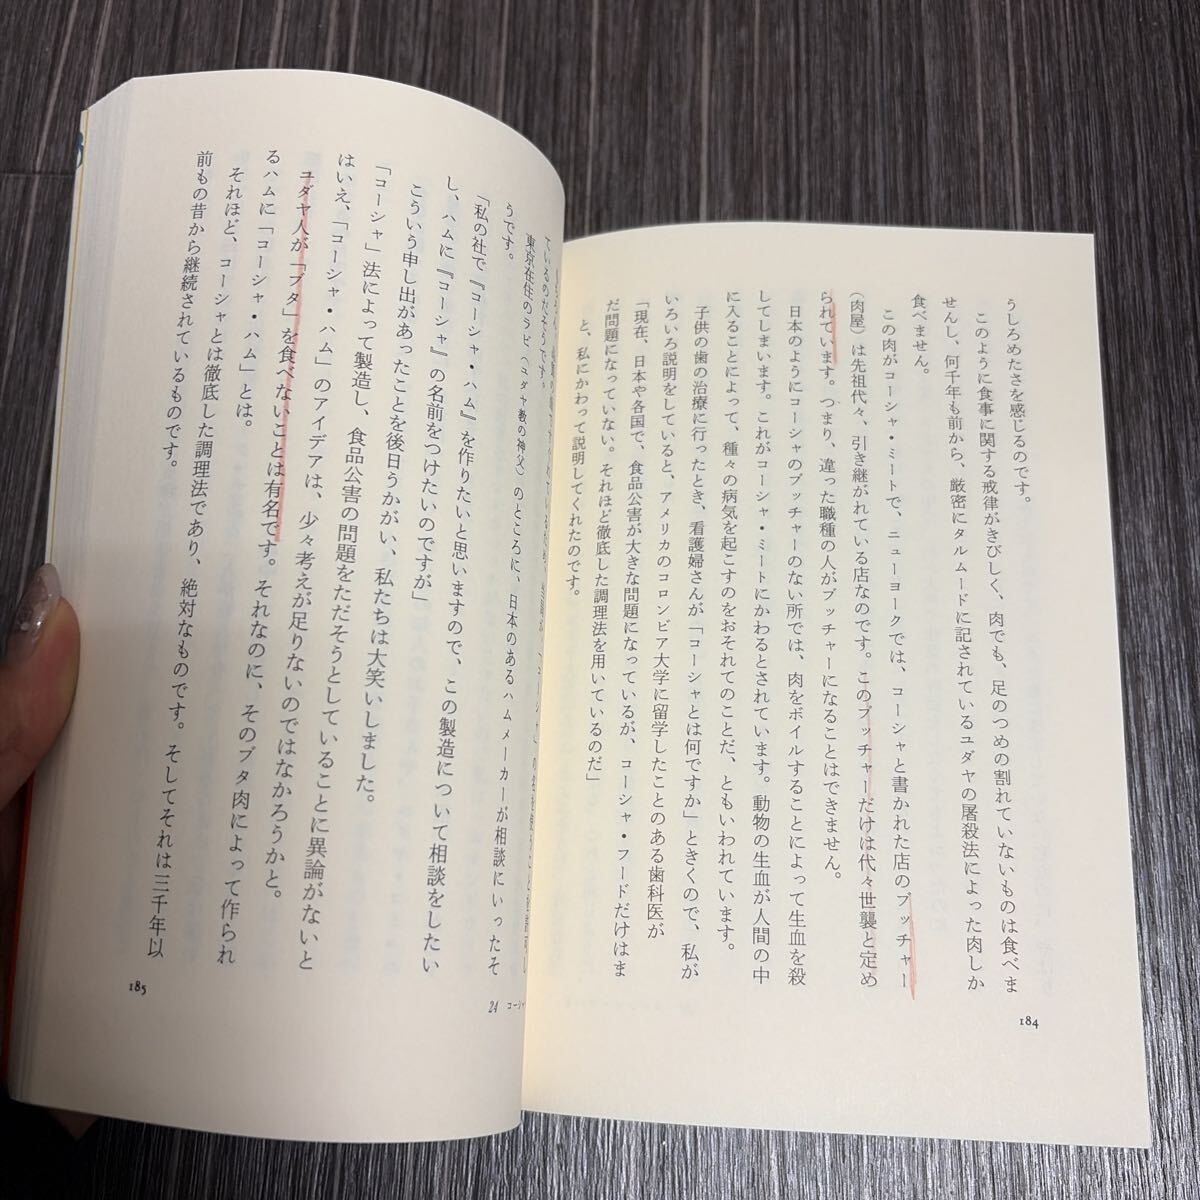 うしろめたさを感じるのです。
このように食事に関する戒律がきびしく、肉でも、足のつめの割れていないものは食べま
せんし、何千年も前から、厳密にタルムードに記されているユダヤの屠殺法によった肉しか
食べません。
この肉がコーシャ・ミートで、ニューヨークでは、コーシャと書かれた店のブッチャー
（肉屋）は先祖代々、引き継がれている店なのです。このブッチャーだけは代々世襲と定め
られています。つまり、違った職種の人がブッチャーになることはできません。
日本のようにコーシャのブッチャーのない所では、肉をボイルすることによって生血を殺
してしまいます。これがコーシャ・ミートにかわるとされています。動物の生血が人間の中
に入ることによって、種々の病気を起こすのをおそれてのことだ、ともいわれています。
子供の歯の治療に行ったとき、看護婦さんが「コーシャとは何ですか」ときくので、私が
いろいろ説明をしていると、アメリカのコロンビア大学に留学したことのある歯科医が
「現在、日本や各国で、食品公害が大きな問題になっているが、コーシャ・フードだけはま
だ問題になっていない。それほど徹底した調理法を用いているのだ」
と、私にかわって説明してくれたのです。
184
ているのだそうです。
東京在住のラビ（ユダヤ教の神父）のところに、日本のあるハムメーカーが相談にいったそ
うです。
「私の社で『コーシャ・ハム』を作りたいと思いますので、この製造について相談をしたい
し、ハムに『コーシャ』の名前をつけたいのですが」
こういう申し出があったことを後日うかがい、私たちは大笑いしました。
「コーシャ」法によって製造し、食品公害の問題をただそうとしていることに異論がないと
はいえ、「コーシャ・ハム」のアイデアは、少々考えが足りないのではなかろうかと。
ユダヤ人が「ブタ」を食べないことは有名です。それなのに、そのブタ肉によって作られ
るハムに「コーシャ・ハム」とは。
それほど、コーシャとは徹底した調理法であり、絶対なものです。そしてそれは三千年以
前もの昔から継続されているものです。
24 コーシャ
185